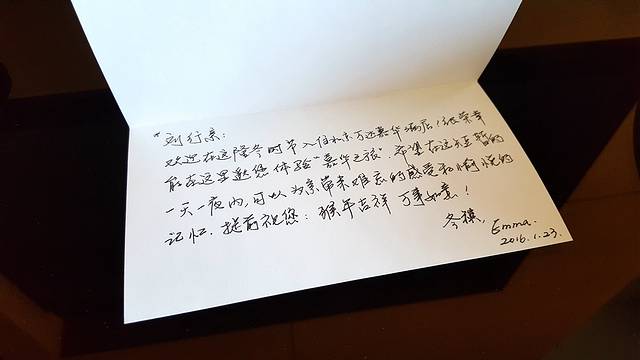 *刘行亲:
欢迎在这隆冬时节入住北京万达嘉华酒店!很荣幸
能在这里邀您体验"嘉华之旅".希望在这短暂的
一天一夜内,可以为亲带来难忘的感受和愉悦的
记忆.提前祝您:猴年吉祥 万事如意!
冬祺,
Emma.
2016.1.23.